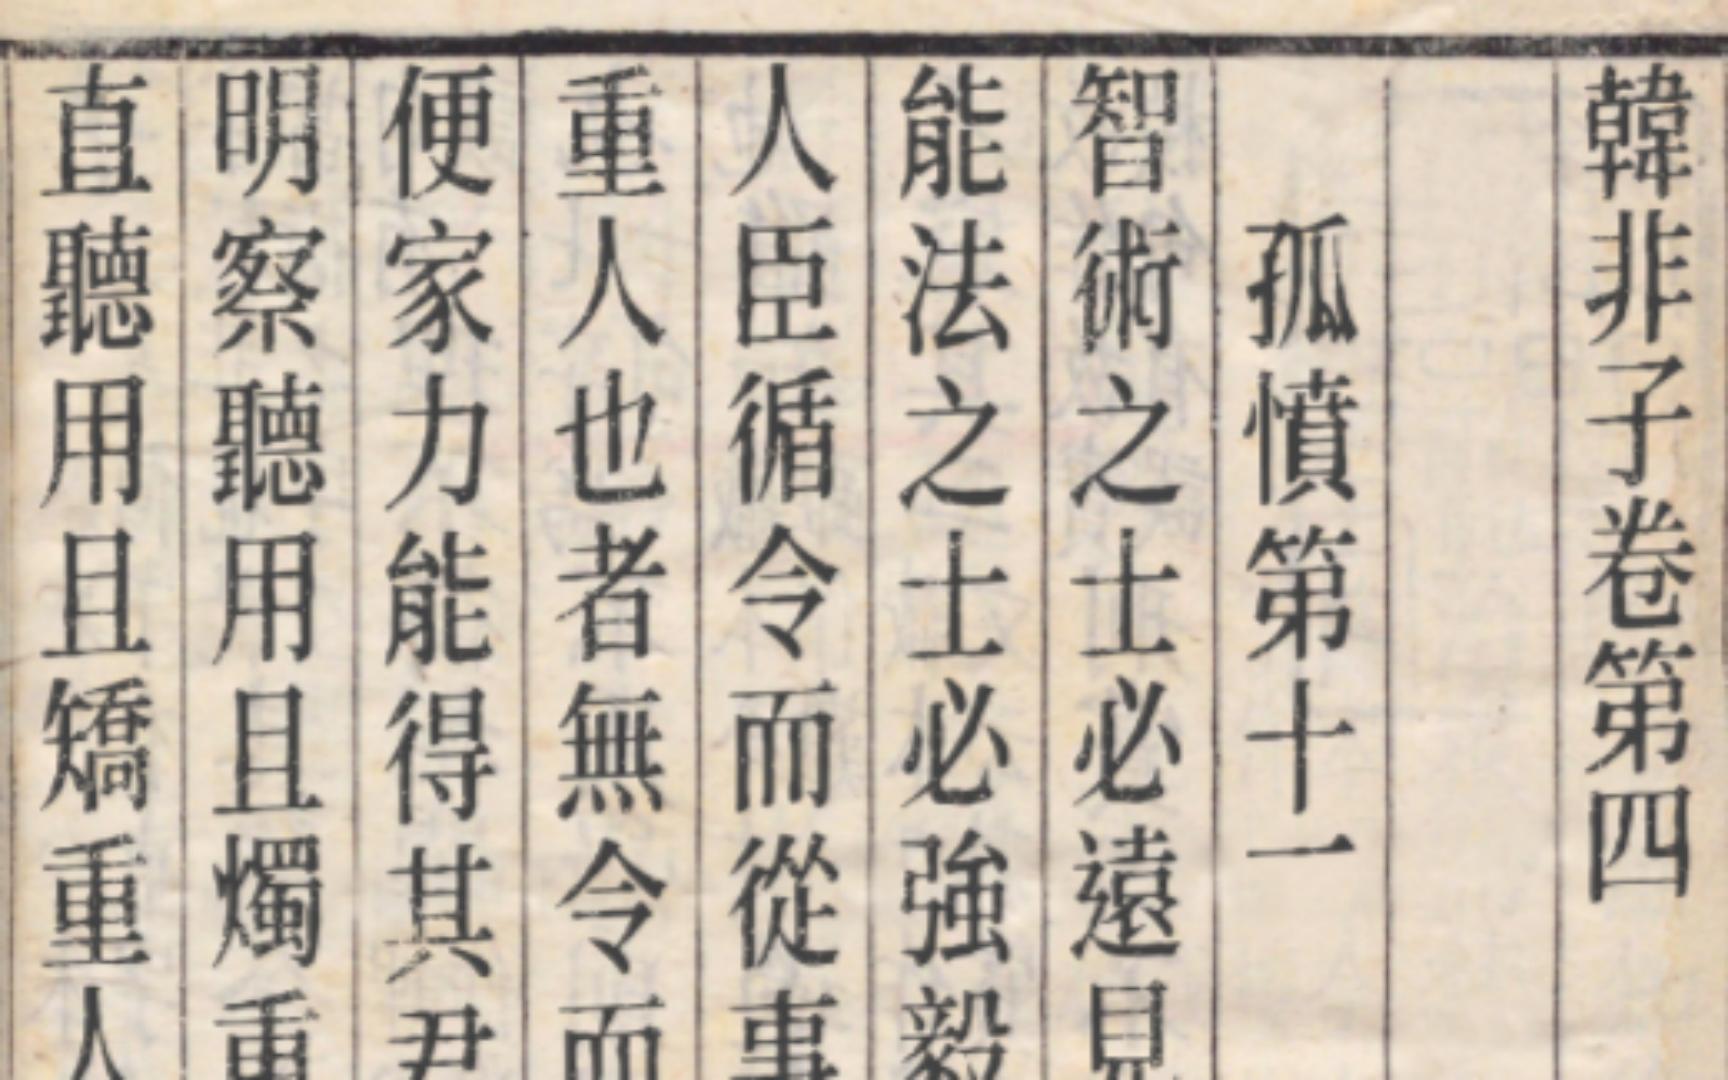 韓非子卷第四
孤憤第十一
智術之士必遠見
能法之士必強毅
人臣循令而從事
重人也者無令而
便家力能得其君
明察聽用且燭重
直聽用且矯重人